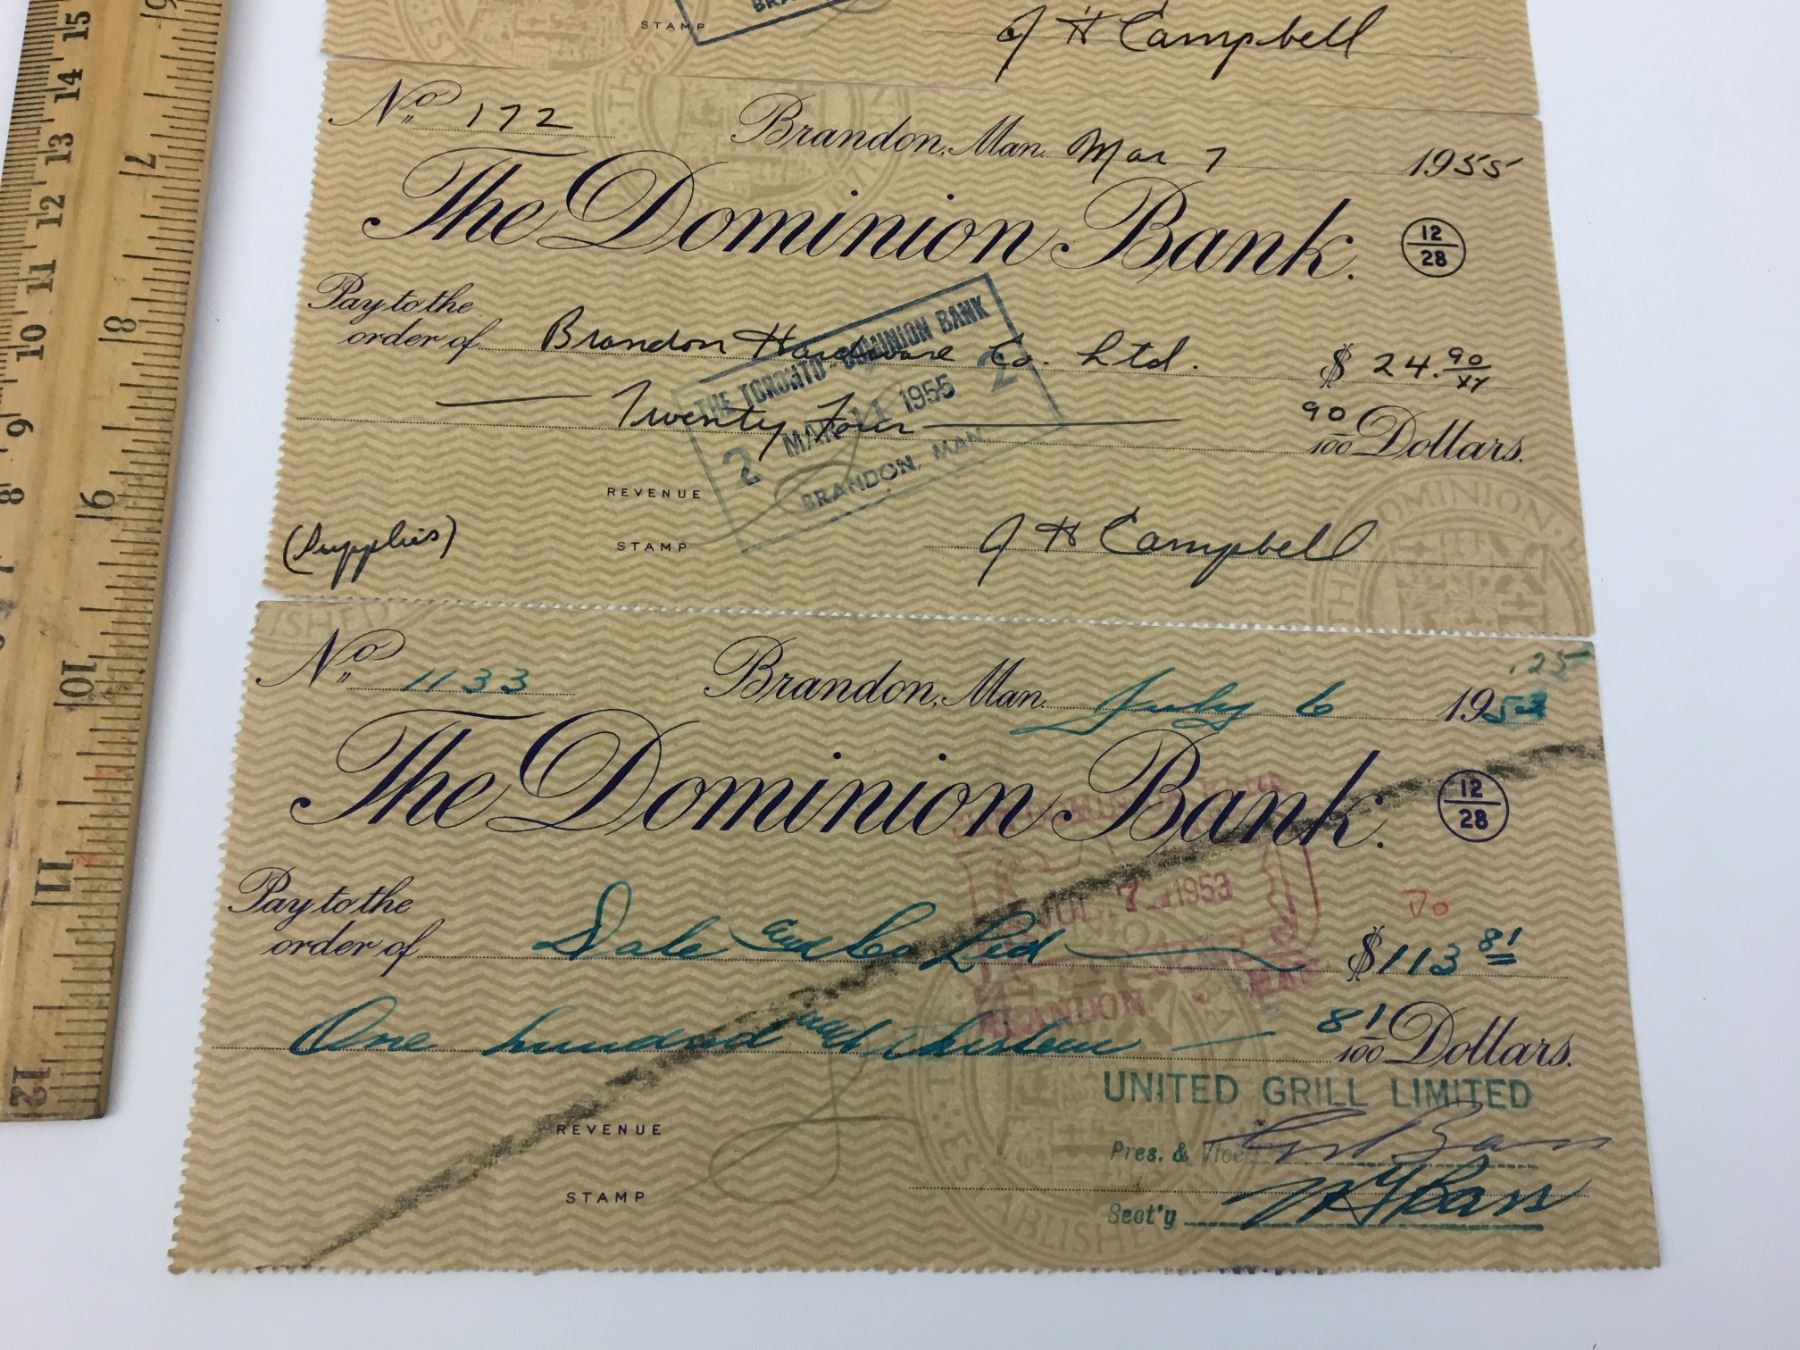 STAMP
J H Campbell
No. 172 Brandon, Man. Mar 7 1955
The Dominion Bank.
12
28
Pay to the
order of Brandon Hardware Co. Ltd. $ 24.90
xx
THE TORONTO-DOMINION BANK
2 MAR 11 1955 2
BRANDON, MAN.
Twenty Four 90
100 Dollars.
REVENUE
STAMP
(Supplies)
J H Campbell
No. 1133 Brandon, Man. July 6 1953
.25
The Dominion Bank.
12
28
Pay to the
order of Dale and Co Ltd $113 81
JUL 7 1953
BRANDON
One hundred and thirteen 81
100 Dollars.
REVENUE
STAMP
UNITED GRILL LIMITED
Pres. & Vice
Sect'y
15
14
13
12
11
10
9
8
7
8
9
10
11
12